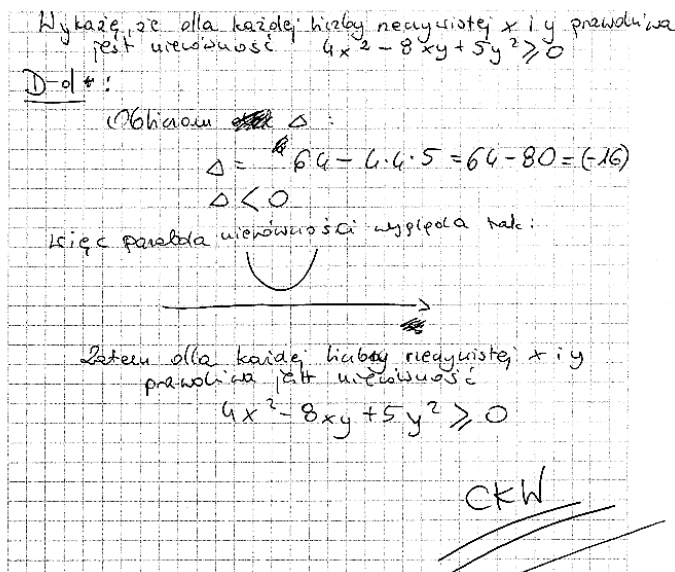 Wykażę, że dla każdej liczby rzeczywistej x i y prawdziwa
jest nierówność 4x² - 8xy + 5y² ⩾ 0
D-d:
Obliczam Δ :
Δ = 64 - 4·4·5 = 64 - 80 = (-16)
Δ < 0
więc parabola nierówności wygląda tak:
Zatem dla każdej liczby rzeczywistej x i y
prawdziwa jest nierówność
4x² - 8xy + 5y² ⩾ 0
CKW